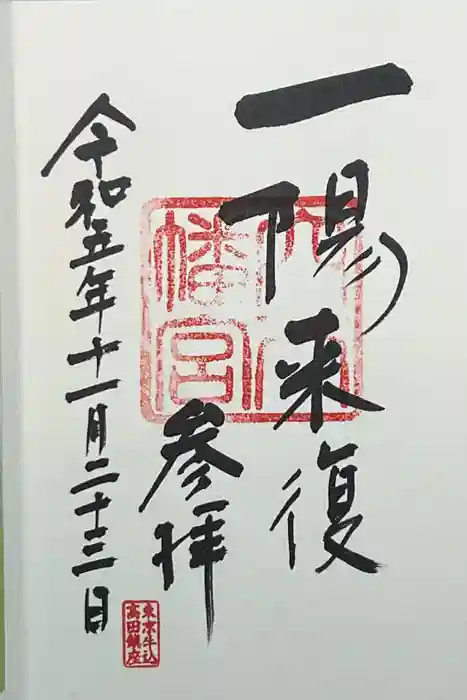 一陽来復
参拝
令和五年十一月二十三日
八幡宮
東京牛込
高田鎮座